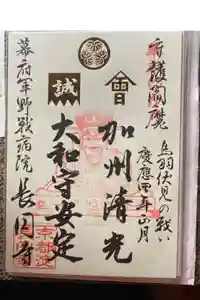 守護閻魔
鳥羽伏見の戦い
慶應四年正月
會
加州清光
誠
大和守安定
幕府軍野戦病院 長円寺